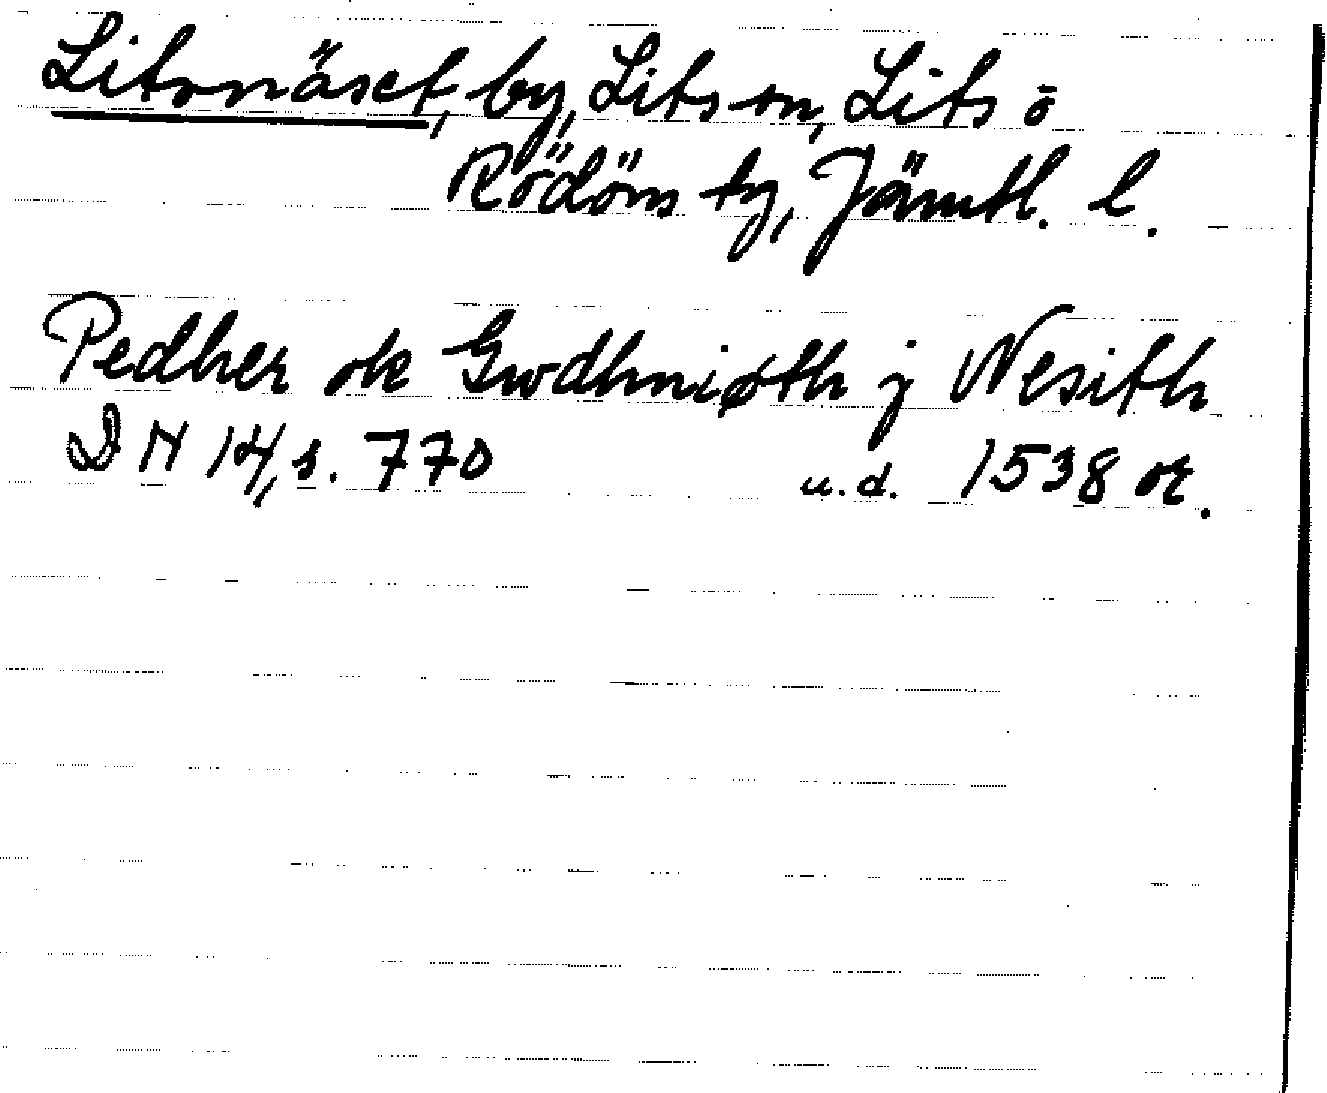 Litsnäset, by, Lits sn, Lits o
Rödöns tg, Jämtl. l.
Pedher ok Gwdhmiøth j Nesith
DN 14, s. 770 u.d. 1538 or.